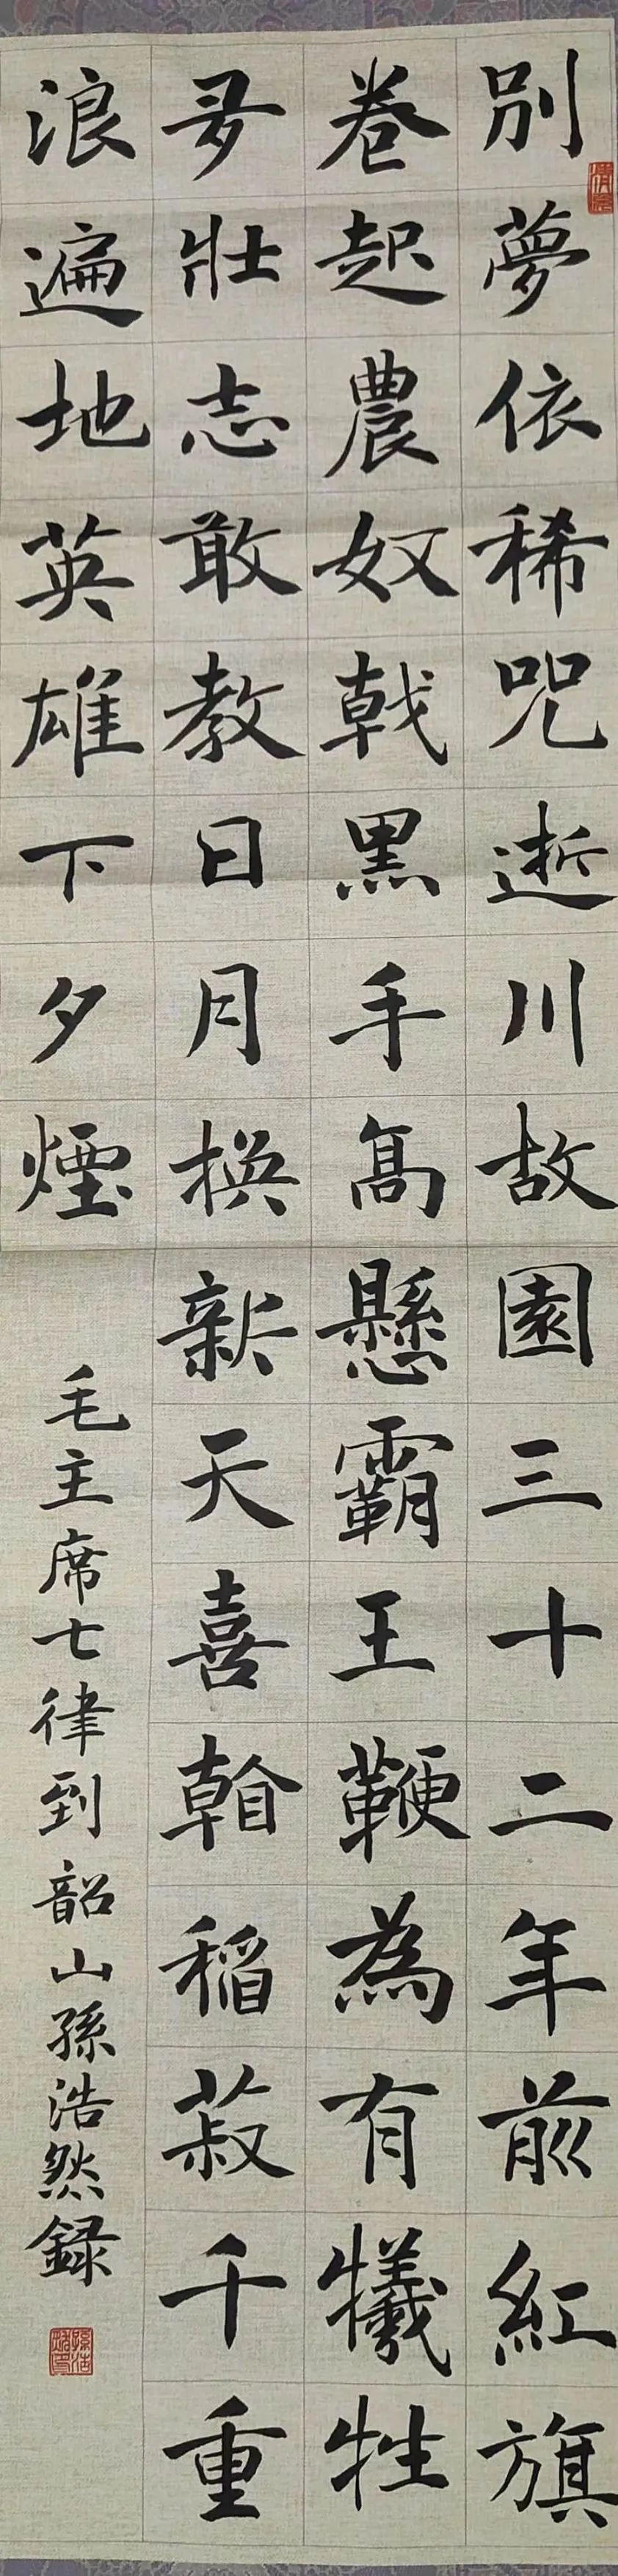 別夢依稀咒逝川故園三十二年前紅旗
卷起農奴戟黑手髙懸霸王鞭為有犧牲
多壯志敢教日月換新天喜看稻菽千重
浪遍地英雄下夕煙
毛主席七律到韶山孫浩然録